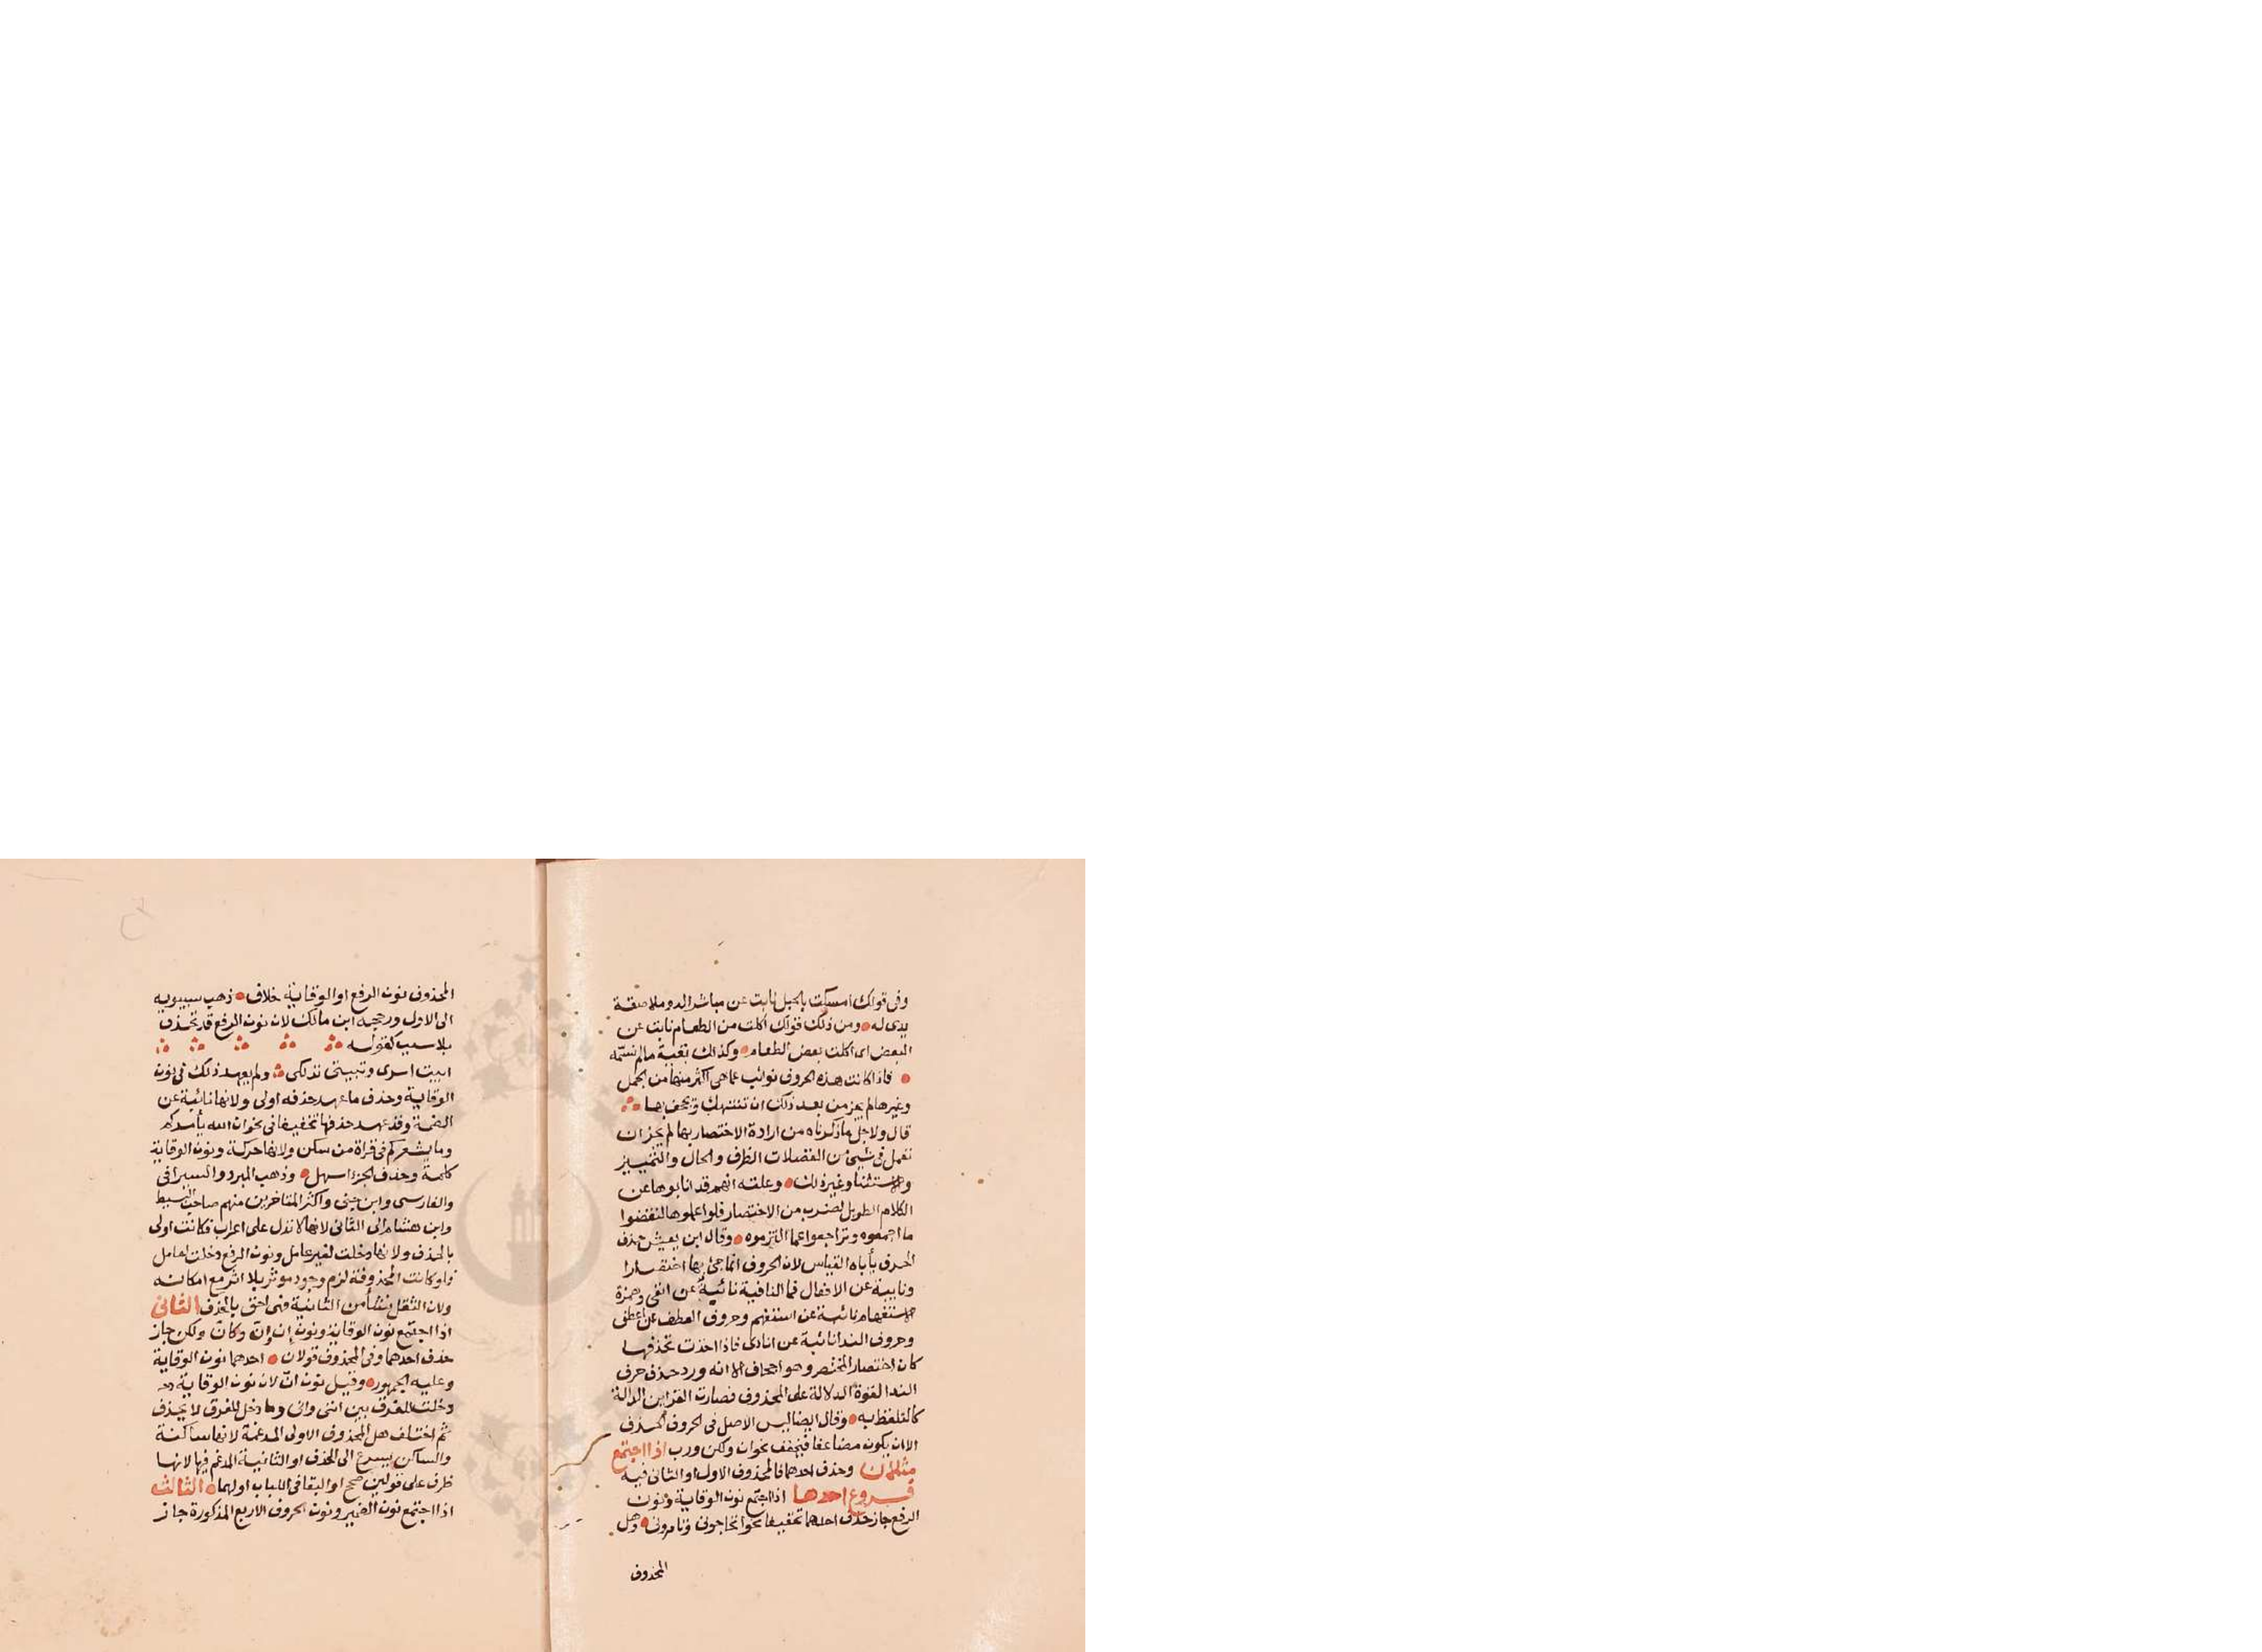 وفى قولك امسكت بالحبل نابت عن مباشرا له وملاصقة
يدى له ومن ذلك قولك اكلت من الطعام نابت عن
البعض اى اكلت بعض الطعام وكذلك بقية مالم نسمه
فاذا كانت هذه الحروف نوائب عما هى اكثر منها من الجمل
وغيرها لم يجز من بعد ذلك ان تنتهك وتجحف بها
قال ولاجل ما ذكرناه من ارادة الاختصار بها لم يجز ان
تعمل فى شيئ من الفضلات الظرف والحال والتمييز
والاستثنا وغير ذلك وعلته انهم قد انابوها عن
الكلام الطويل لضرب من الاختصار فلو اعملوها لنقضوا
ما اجمعوه وتراجعوا عما التزموه وقال ابن يعيش حذف
الحرف يأباه القياس لان الحروف انما جئ بها اختصارا
ونايبة عن الافعال فما النافية نائبة عن انفى وهمزة
الاستفهام نائبة عن استفهم وحروف العطف عن اعطف
وحروف الندا نائبة عن انادى فاذا اخذت تحذفها
كان اختصار المختصر وهو اجحاف الا انه ورد حذف حرف
الندا لقوة الدلالة على المحذوف فصارت القراين الدالة
كالتلفظ به وقال ايضا ليس الاصل فى الحروف الحذف
الا ان يكون مضاعفا فيخفف نحو ان ولكن ورب اذا اجتمع
مثلان وحذف احدهما فالمحذوف الاول او الثانى فيه
فروع احدها اذا اجتمع نون الوقاية ونون
الرفع جاز حذف احدهما تخفيفا نحو اتحاجونى وتامرونى وهل
المحذوف
المحذوف نون الرفع او الوقاية خلاف ذهب سيبويه
الى الاول ورجحه ابن مالك لان نون الرفع قد تحذف
بلا سبب كقوله
ابيت اسرى وتبيتى تدلكى ولم يعهد ذلك فى نون
الوقاية وحذف ما عهد حذفه اولى ولانها نائبة عن
الضمة وقد عهد حذفها تخفيفا فى نحو ان الله يأمركم
وما يشعركم فى قراة من سكن ولانها حركة ونون الوقاية
كلمة وحذف الجزء اسهل وذهب المبرد والسيرافى
والفارسى وابن جنى واكثر المتاخرين منهم صاحب البسيط
وابن هشام الى الثانى لانها لا تدل على اعراب فكانت اولى
بالحذف ولانها دخلت لغير عامل ونون الرفع دخلت لعامل
فلو كانت المحذوفة لزم وجود موثر بلا اثر مع امكانه
ولان الثقل ينشأ من الثانية فهى احق بالحذف الثانى
اذا اجتمع نون الوقاية ونون إن وأن وكأن ولكن جاز
حذف احدهما وفى المحذوف قولان احدهما نون الوقاية
وعليه الجمهور وقيل نون ان لان نون الوقاية
دخلت للفرق بين اننى وانى وما دخل للفرق لا يحذف
ثم اختلف هل المحذوف الاولى المدغمة لانها ساكنة
والساكن يسرع الى الحذف او الثانية المدغم فيها لانها
طرف على قولين صحح ابو البقا فى اللباب اولهما الثالث
اذا اجتمع نون الضمير ونون الحروف الاربع المذكورة جاز